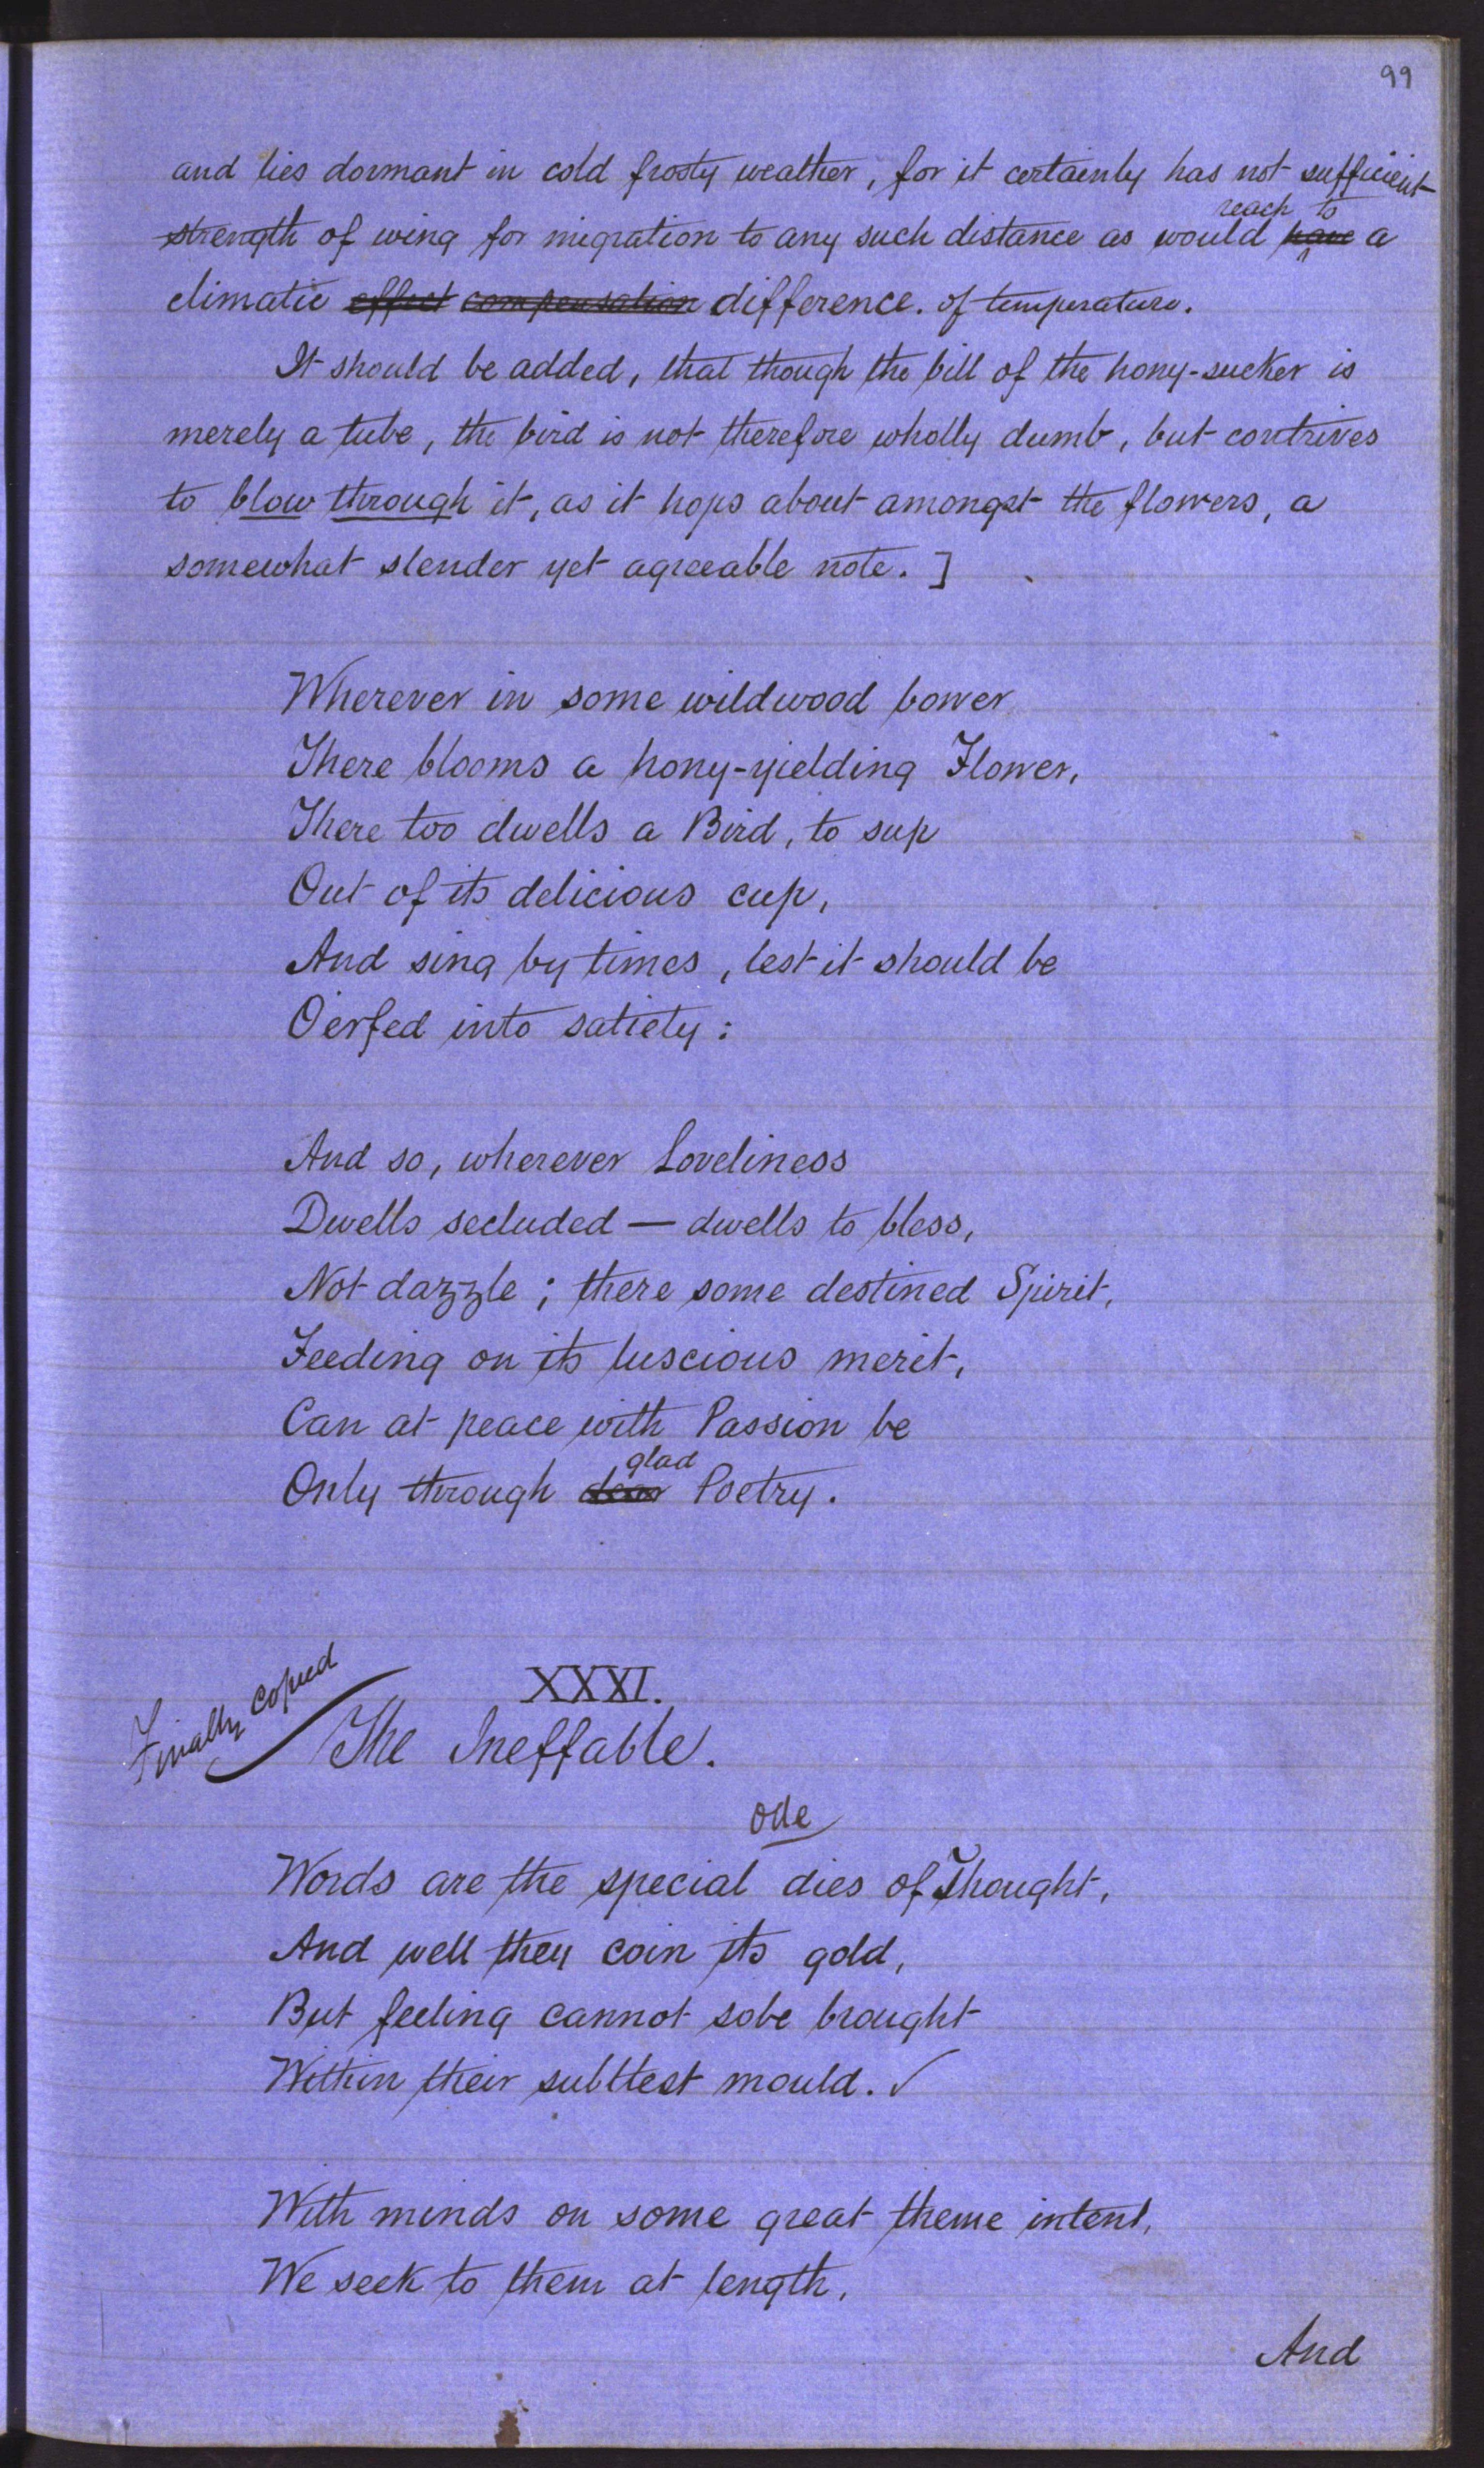 99
and lies dormant in cold frosty weather, for it certainly has not sufficient
reach to
strength of wing for migration to any such distance as would have a
climatic effect compensation difference. of temperature.
It should be added, that though the bill of the hony-sucker is
merely a tube, the bird is not therefore wholly dumb, but contrives
to blow through it, as it hops about amongst the flowers, a
somewhat slender yet agreeable note.]
Wherever in some wildwood bower
There blooms a hony-yielding Flower,
There too dwells a Bird, to sup
Out of its delicious cup,
And sing by times, lest it should be
O'erfed into satiety:
And so, wherever Loveliness
Dwells secluded — dwells to bless,
Not dazzle; there some destined Spirit,
Feeding on its luscious merit,
Can at peace with Passion be
glad
Only through dear Poetry.
Finally copied
XXXI.
The Ineffable.
Ode
Words are the special dies of Thought,
And well they coin its gold,
But feeling cannot sobe brought
Within their subttest mould. ✓
With minds on some great theme intent,
We seek to them at length,
And